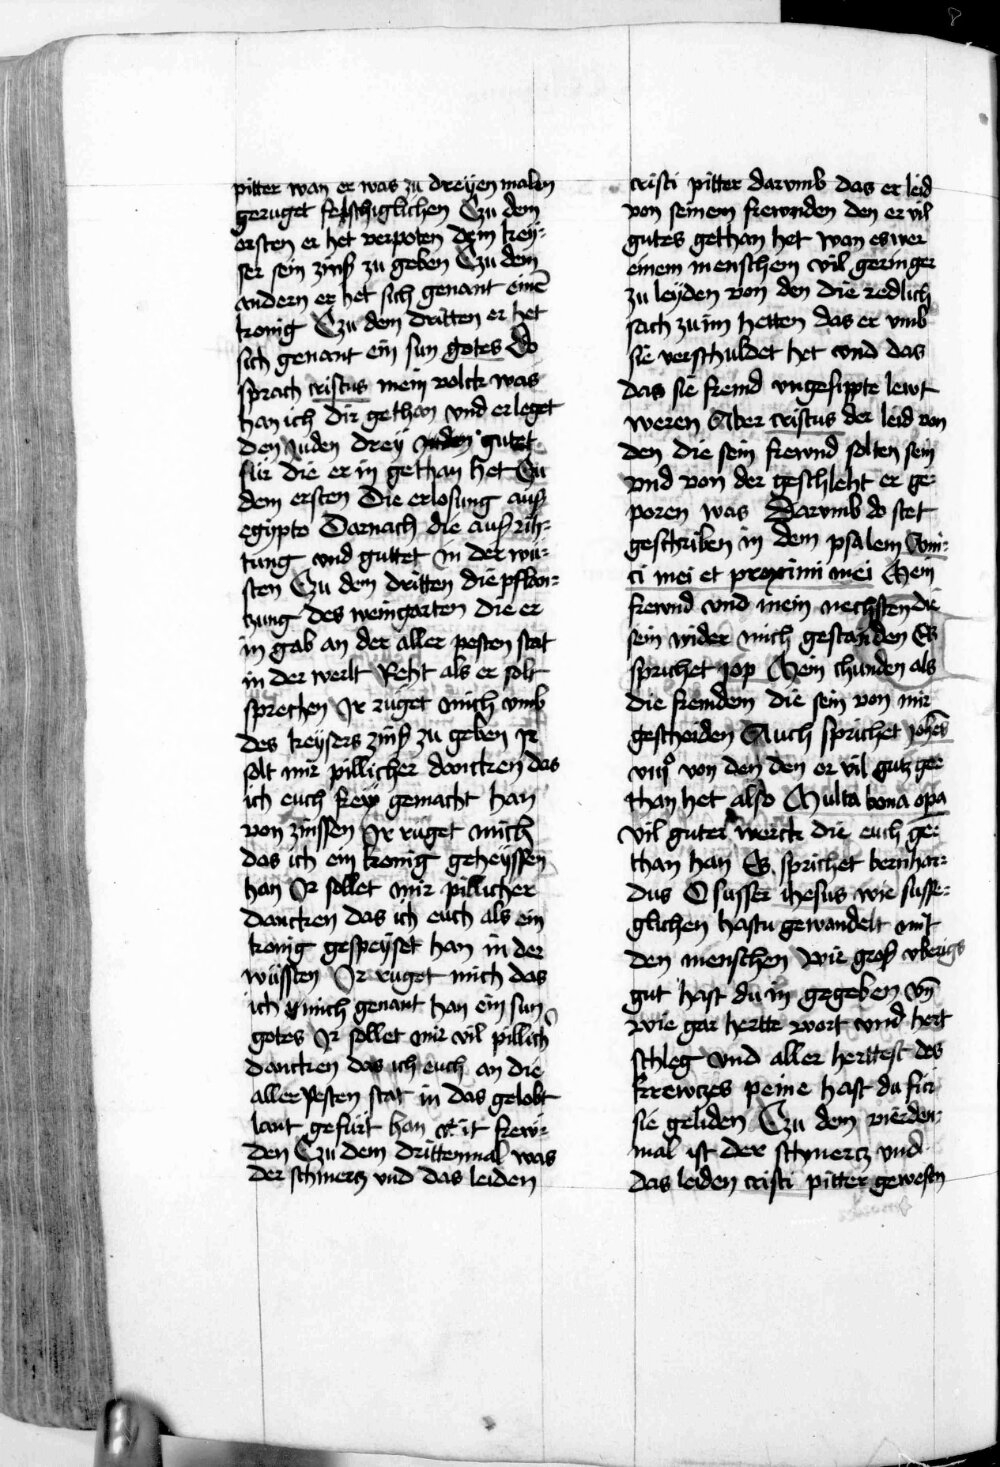 pitter wan er was zu dreyen malen
geruget felschiglichen Czu dem
ersten er het verpoten dem key-
ser sein zinß zu geben Czu dem
andern er het sich genant einē
konig Czu dem dritten er het
sich genant ein sun gotes Do
sprach cristus mein volck was
han ich dir gethan vnd er leget
den iuden drey gutet
für die er in gethan het Czu
dem ersten Die erlosung auß
egipto Darnach die auß rih-
tung vnd guttet in der wü-
sten Czu dem dritten die pflan-
czung des weingarten die er
in gab an der aller pesten stat
in der werlt Reht als er solt
sprechen Ir ruget mich vmb
des keysers zinß zu geben Ir
solt mir pillicher dancken das
ich euch frey gemacht han
von zinssen Ir ruget mich
das ich ein konig geheyssen
han Ir sollet mir pillicher
dancken das ich euch als ein
konig gespeyset han in der
wüssten Ir ruget mich das
ich mich genant han ein sun
gotes Ir sollet mir vil pillich
dancken das ich euch an die
aller pesten stat in das gelobt
lant gefürt han mit frew-
den Czu dem drittenmal was
der schmercz vnd das leiden
cristi pitter darvmb das er leid
von seinem frewnden den er vil
gutes gethan het wan es wer
einem menschem vil geringer
zu leyden von den die redlich
sach zu im hetten das er vmb
sie verschuldet het vnd das
das sie fremd vngesippte lewt
weren Aber cristus der leid von
den die sein frewnd solten sein
vnd von der geschleht er ge-
poren was Darvmb do stet
geschriben in dem psalem Ami-
ci mei et proximi mei Mein
frewnd vnd mein nechsten die
sein wider mich gestanden Es
sprichet iop Mein chunden als
die fremdem die sein von mir
gescheiden Auch sprichet johēs
viiiº von den den er vil gutz ge-
than het also Multa bona opa
vil guter werck die euch ge-
than han Es sprichet bernhar-
dus O susser ihesus wie susse-
glichen hastu gewandelt mit
den menschen wie groß vberigs
gut hast du in gegeben vn̄
wie gar hertte wort vnd hert
schleg vnd aller herttest des
krewczes peine hast du für
sie geliden Czu dem vierden-
mal ist der schmercz vnd
das leiden cristi pitter gewesen